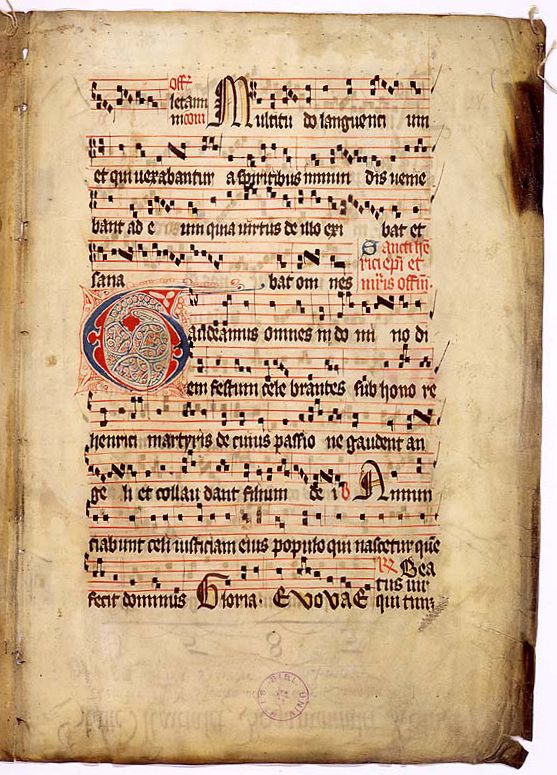 Off̄
letam
m com̄ Multitu do languenti um
et qui uexabantur a spiritibus inmun dis uenie
bant ad e um quia uirtus de illo exi bat et
sana bat om nes
Sancti he
rici epī et
mr̄is offm̄.
Gaudeamus omnes in do mi no di
em festum cele brantes sub hono re
henrici martyris de cuius passio ne gaudent an
ge li et collau dant filium de i v Annun
ciabunt celi iusticiam eius populo qui nascetur quē
fecit dominus Gloria. Evovae
R Bea
tus uir
qui tim